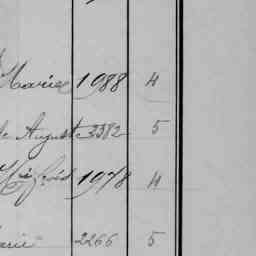 Marie 1988 4
de Auguste 3382 5
1978 4
Marie 2266 5